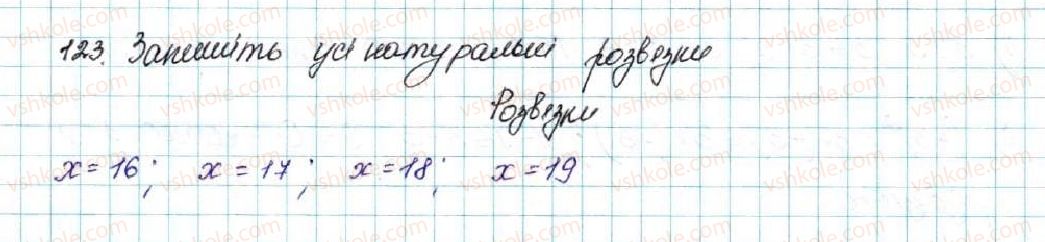 123. Запишіть усі натуральні розвязки
Розвязки
x = 16; x = 17; x = 18; x = 19